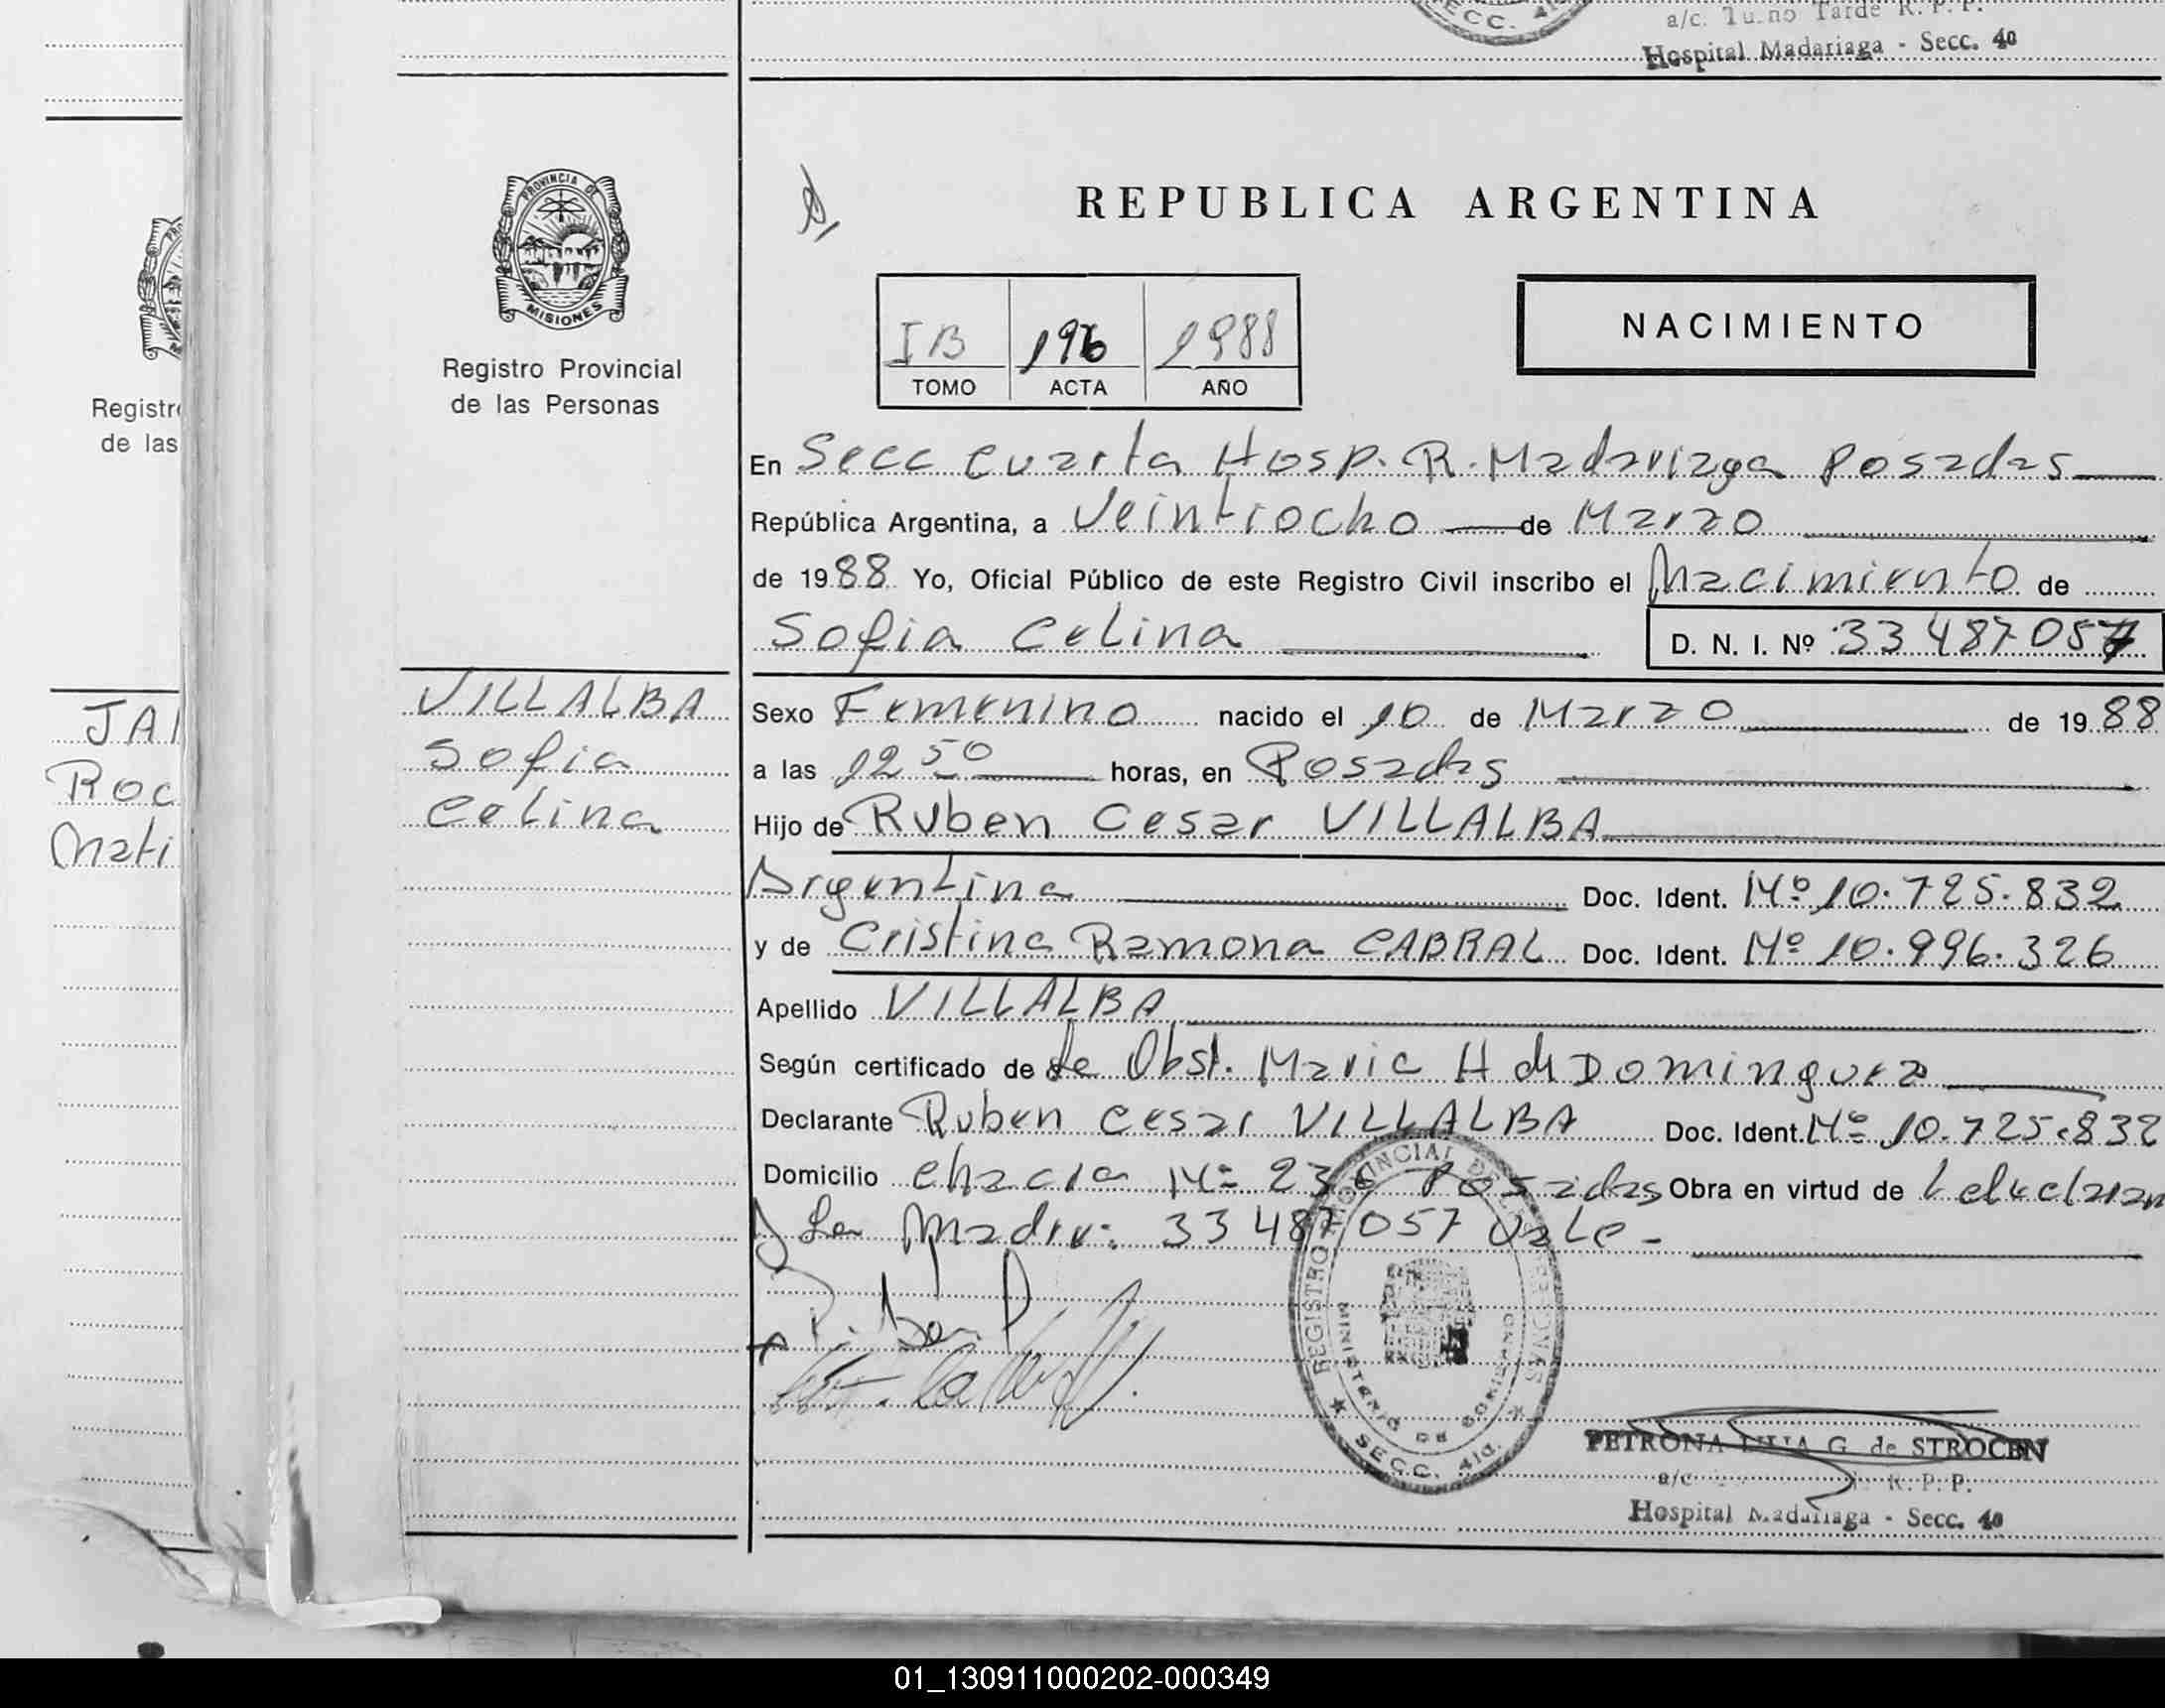 SECC. 4ta
a/c. Turno Tarde R. P. P.
Hospital Madariaga - Secc. 4a
PROVINCIA DE
MISIONES
Registro Provincial
de las Personas
REPUBLICA ARGENTINA
IB 196 1988
TOMO ACTA AÑO
NACIMIENTO
En Secc Cuarta Hosp. R. Madariaga Posadas
República Argentina, a Veintiocho de Marzo
de 1988 Yo, Oficial Público de este Registro Civil inscribo el Nacimiento de
Sofia Celina
D. N. I. Nº 33 487 057
VILLALBA
Sofia
Celina
Sexo Femenino nacido el 10 de Marzo de 1988
a las 12 50 horas, en Posadas
Hijo de Ruben Cesar VILLALBA
Argentina Doc. Ident. Nº 10.725.832
y de Cristina Ramona CABRAL Doc. Ident. Nº 10.996.326
Apellido VILLALBA
Según certificado de de Obst. Maria H de Dominguez
Declarante Ruben Cesar VILLALBA Doc. Ident. Nº 10.725.832
Domicilio Chacra Nº 236 Posadas Obra en virtud de
La Madre: 33 487 057 Vale-
REGISTRO PROVINCIAL DE LAS PERSONAS
MINISTERIO DE GOBIERNO
SECC. 4ta.
PETRONA LILIA G. de STROCEN
a/c R. P. P.
Hospital Madariaga - Secc. 4a
Registr
de las
JA
Roc
Mati
01_130911000202-000349